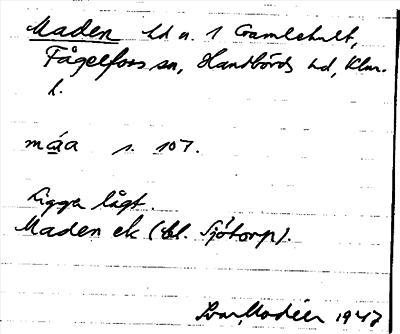 Maden ld u. 1 Gamlehult,
Fågelfors sn, Handbörds hd, Klm.
l.
máa s. 107.
Ligger lågt.
Maden ek (bl. Sjötorp).
Ivar Modéer 1947